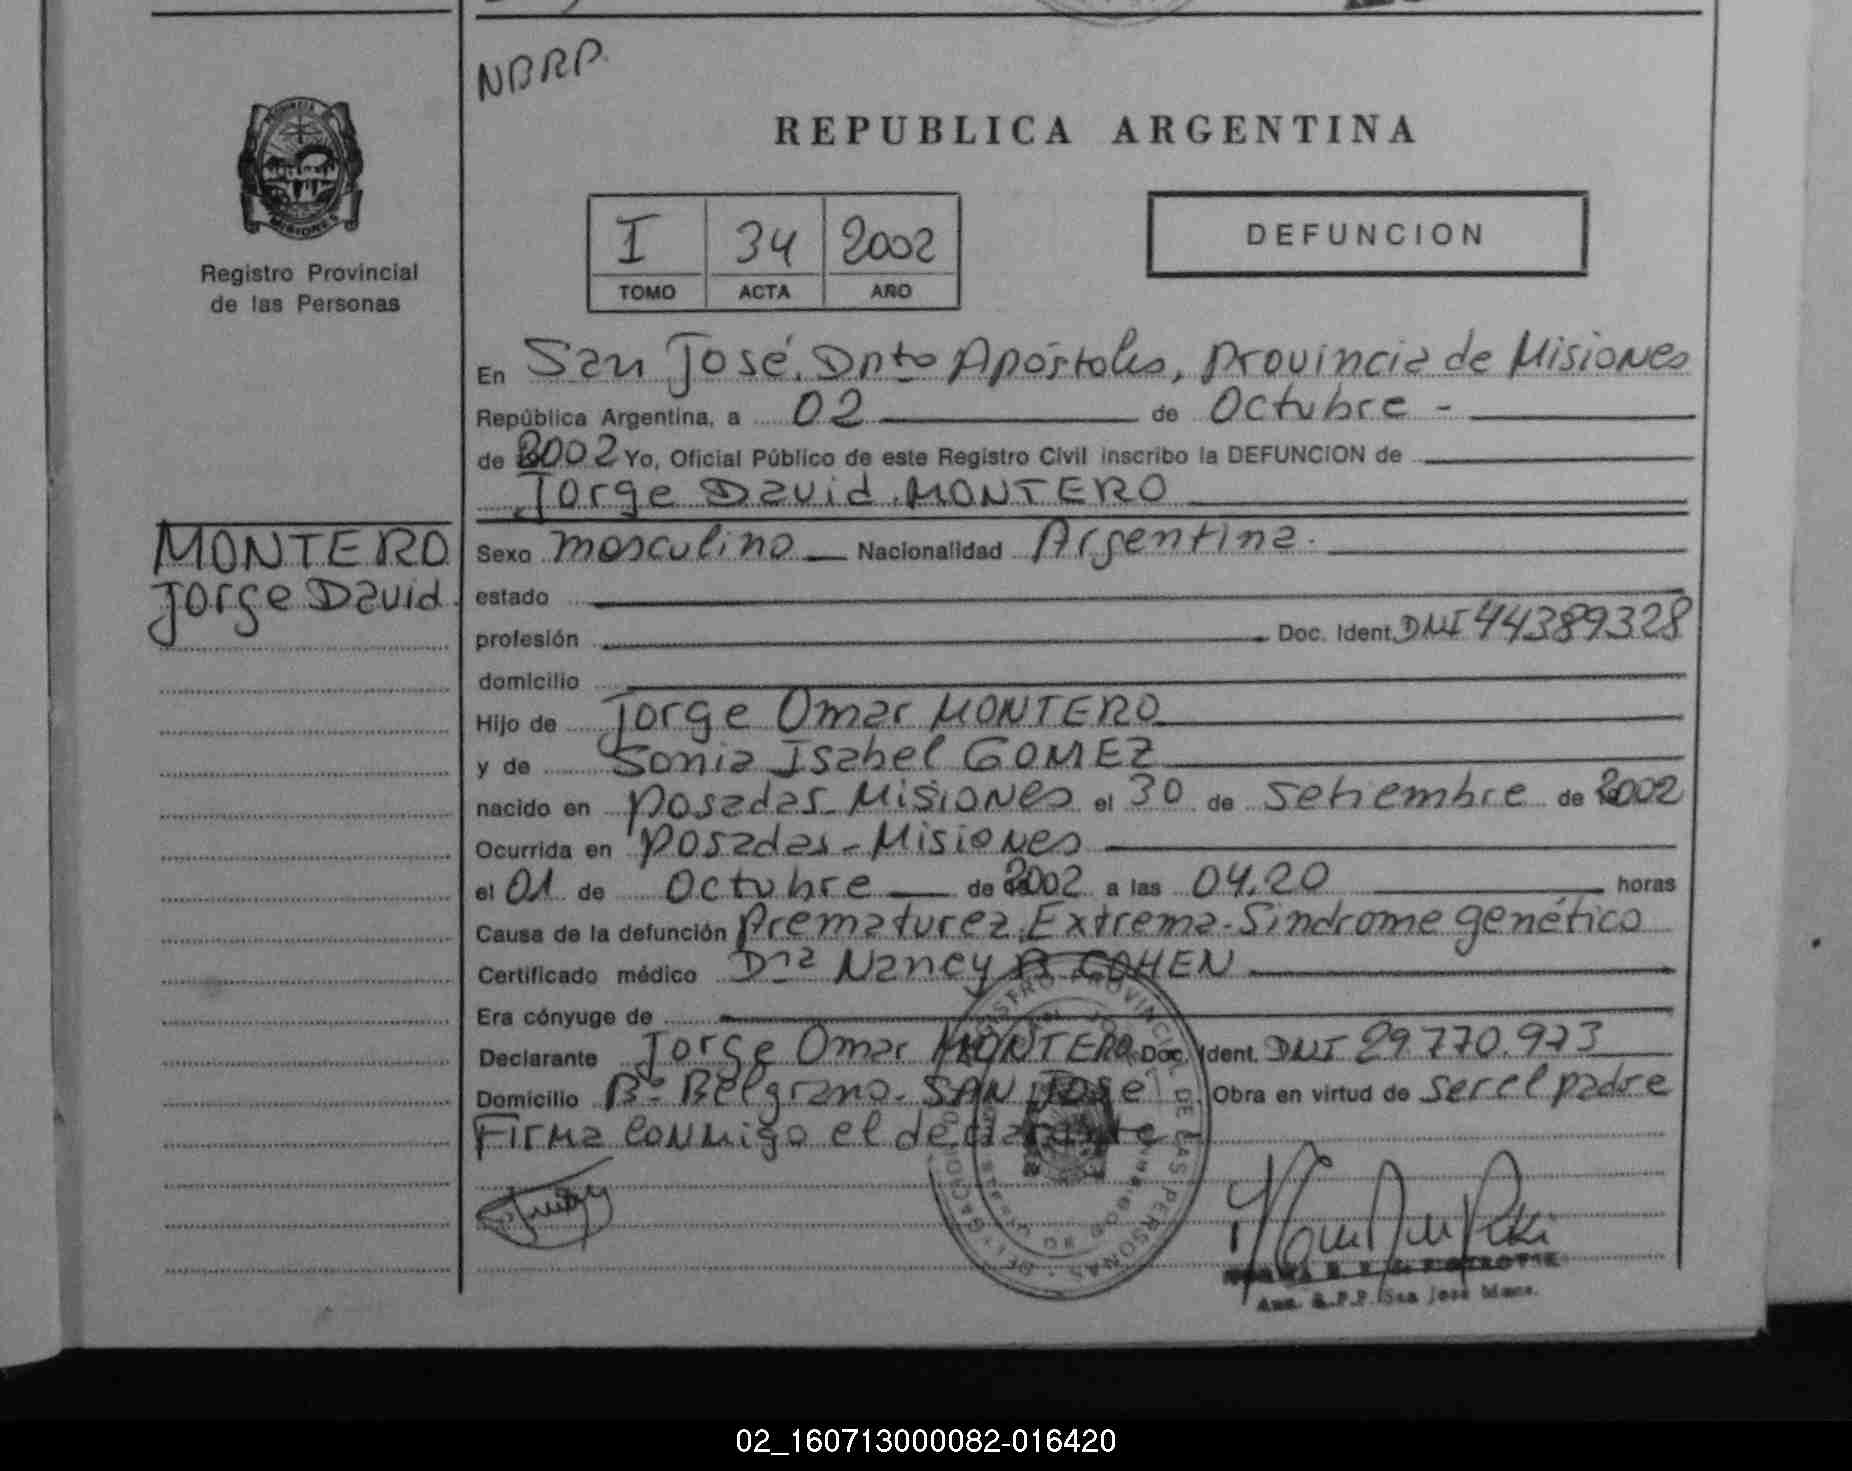 NBRP.
REPUBLICA ARGENTINA
PROVINCIA
MISIONES
Registro Provincial
de las Personas
I 34 2002
TOMO ACTA AÑO
DEFUNCION
En San José. Dpto Apóstoles, provincia de Misiones
República Argentina, a 02 de Octubre -
de 2002 Yo, Oficial Público de este Registro Civil inscribo la DEFUNCION de
Jorge David MONTERO
MONTERO
Jorge David.
Sexo masculino Nacionalidad Argentina.
estado
profesión Doc. Ident. DNI 44389328
domicilio
Hijo de Jorge Omar MONTERO
y de Sonia Isabel GOMEZ
nacido en Posadas - Misiones el 30 de Setiembre de 2002
Ocurrida en Posadas - Misiones
el 01 de Octubre de 2002 a las 04.20 horas
Causa de la defunción Prematurez Extrema - Síndrome genético
Certificado médico Dra Nancy B COHEN
Era cónyuge de
Declarante Jorge Omar MONTERO Doc. Ident. DNI 29.770.973
Domicilio Bº Belgrano - SAN José Obra en virtud de ser el padre
Firma conmigo el declarante
REGISTRO PROVINCIAL DE LAS PERSONAS
Aux. R.P.P. San José Mnes.
02_160713000082-016420